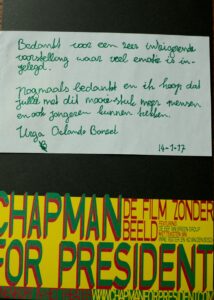 Bedankt voor een zeer intrigerende
voorstelling waar veel emotie is in-
gelegd.
Nogmaals bedankt en ik hoop dat
jullie met dit mooie stuk meer mensen
en ook jongeren kunnen trekken.
Orlando
14-1-17
CHAPMAN
DE FILM ZONDER
BEELD
FOR PRESIDENT
WWW.CHAPMANFORPRESIDENT.NL